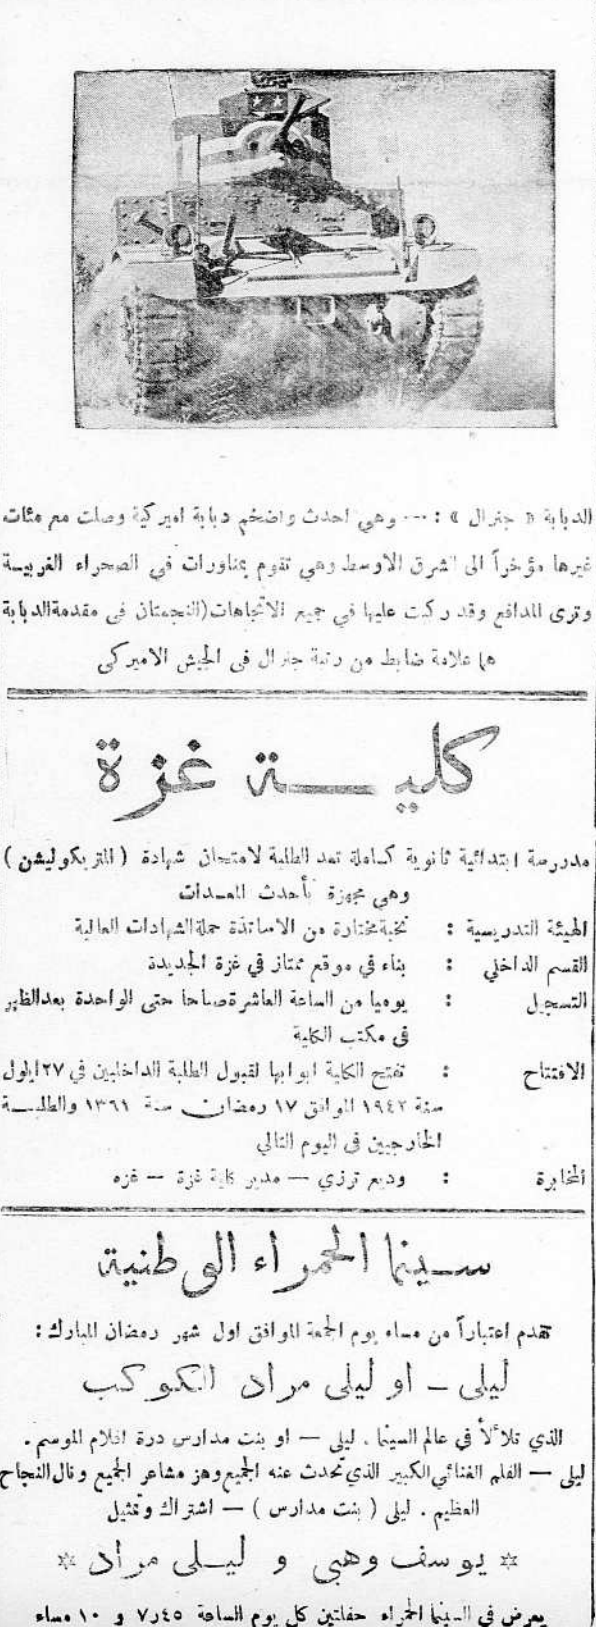 الدبابة « جنرال » : --- وهي احدث واضخم دبابة اميركية وصلت مع مئات
غيرها مؤخراً الى الشرق الاوسط وهي تقوم بمناورات في الصحراء الغربيــة
وترى المدافع وقد ركبت عليها في جميع الاتجاهات (النجمتان في مقدمة الدبابة
هما علامة ضابط من رتبة جنرال فى الجيش الاميركى
كليــة غزة
مدرسة ابتدائية ثانوية كاملة تعد الطلبة لامتحان شهادة ( المتريكوليشن )
وهي مجهزة بأحدث المعدات
الهيئة التدريسية : نخبة مختارة من الاساتذة حملة الشهادات العالية
القسم الداخلي : بناء في موقع ممتاز في غزة الجديدة
التسجيل : يوميا من الساعة العاشرة صباحا حتى الواحدة بعد الظهر
فى مكتب الكلية
الافتتاح : تفتح الكلية ابوابها لقبول الطلبة الداخليين في ٢٧ ايلول
سنة ١٩٤٢ الموافق ١٧ رمضان سنة ١٣٦١ والطلبــة
الخارجيين فى اليوم التالي
المخابرة : وديع ترزي — مدير كلية غزة — غزه
سـينما الحمراء الوطنية
تقدم اعتباراً من مساء يوم الجمعة الموافق اول شهر رمضان المبارك :
ليلى – او ليلى مراد الكوكب
الذي تلألأ في عالم السينما . ليلى — او بنت مدارس درة افلام الموسم .
ليلى — الفلم الغنائي الكبير الذي تحدث عنه الجميع وهز مشاعر الجميع ونال النجاح
العظيم . ليلى ( بنت مدارس ) — اشتراك وتمثيل
✡ يوسف وهبى و ليـلى مراد ✡
يعرض في السينما الحمراء حفلتين كل يوم الساعة ٧ر٤٥ و ١٠ مساء